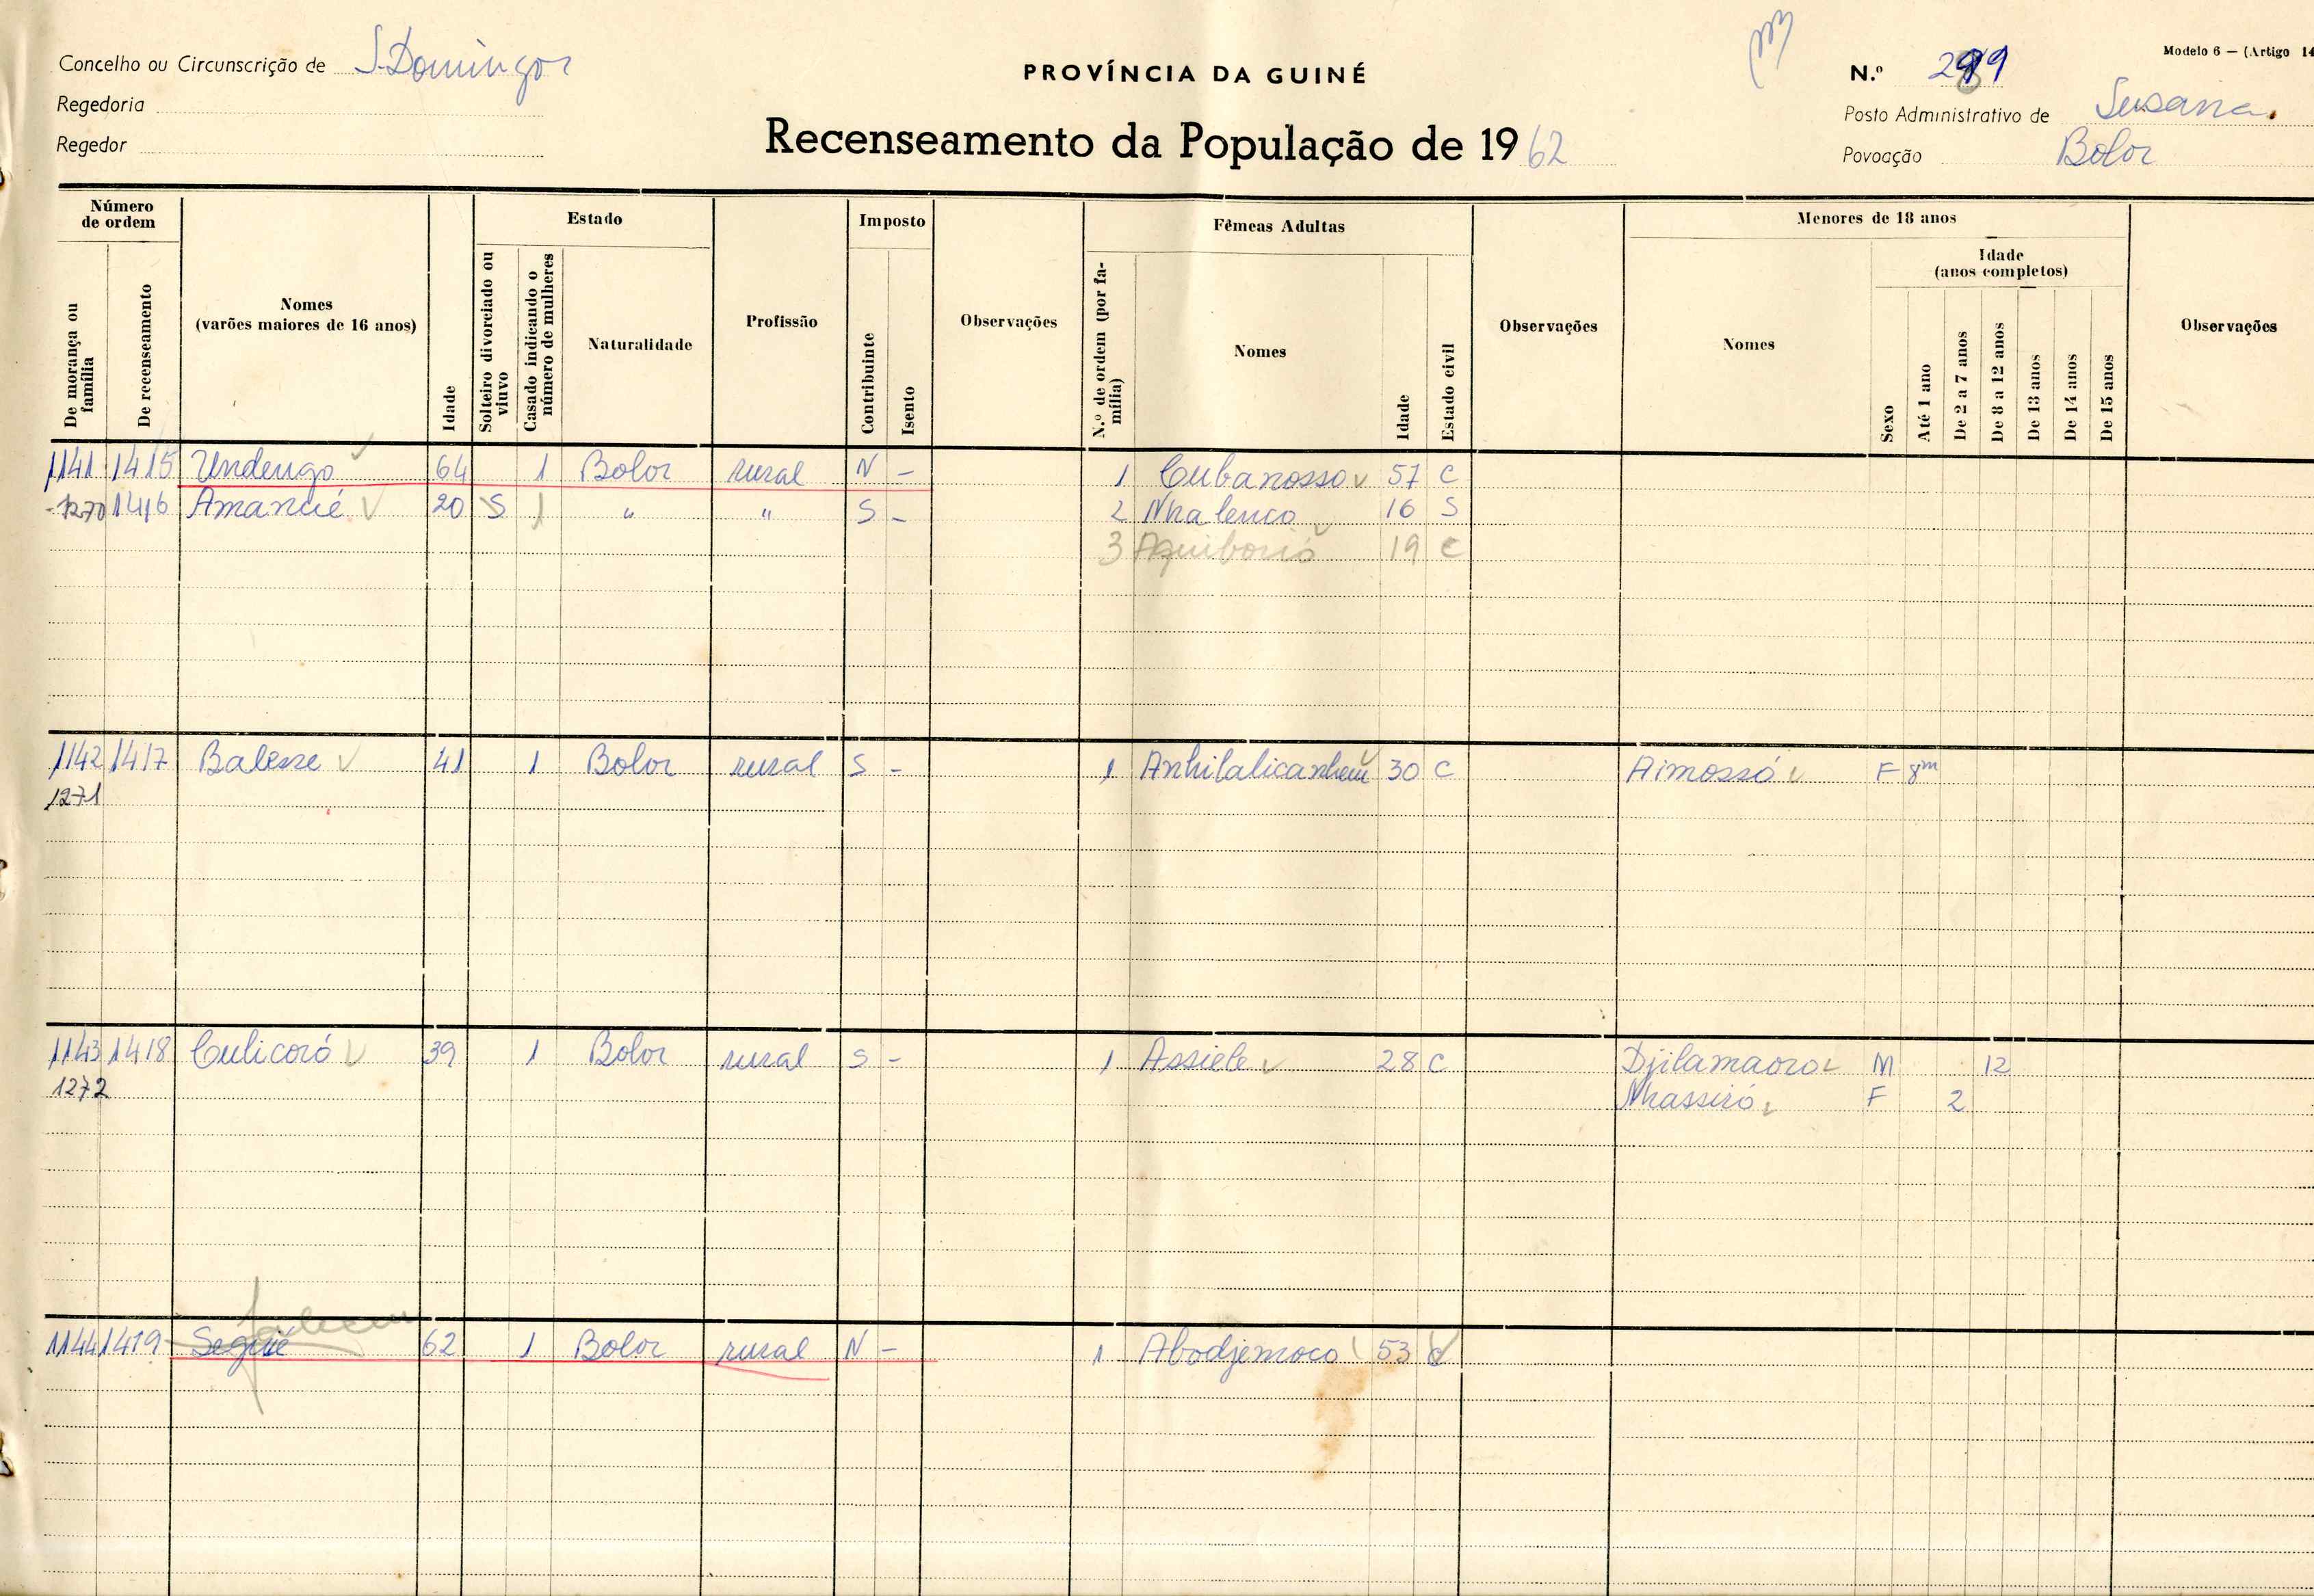 Concelho ou Circunscrição de S. Domingos
Regedoria
Regedor
PROVÍNCIA DA GUINÉ
Recenseamento da População de 1962
Modelo 6 — (Artigo 14
N.º
Posto Administrativo de Susana
Povoação Bolor
Número de ordem
De morança ou família
De recenseamento
Nomes
(varões maiores de 16 anos)
Idade
Estado
Solteiro divorciado ou viuvo
Casado indicando o número de mulheres
Naturalidade
Profissão
Imposto
Contribuinte
Isento
Observações
Fêmeas Adultas
N.º de ordem (por família)
Nomes
Idade
Estado civil
Observações
Menores de 18 anos
Nomes
Sexo
Idade
(anos completos)
Até 1 ano
De 2 a 7 anos
De 8 a 12 anos
De 13 anos
De 14 anos
De 15 anos
Observações
1141 1415 Undengo 64 1 Bolor rural N - 1 Cubanosso 57 C
1270 1416 Amancié 20 S 1 " " S - 2 Nhalenco 16 S
3 19 C
1142 1417 Balesse 41 1 Bolor rural S - 1 Anhilalicanhem 30 C Aimossó F 8m
1271
1143 1418 Culicoró 39 1 Bolor rural S - 1 Assiele 28 C Djilamaoro M 12
1272 Nhassiró F 2
1144 1419 Seguié 62 1 Bolor rural N - 1 Abodjemoco 53